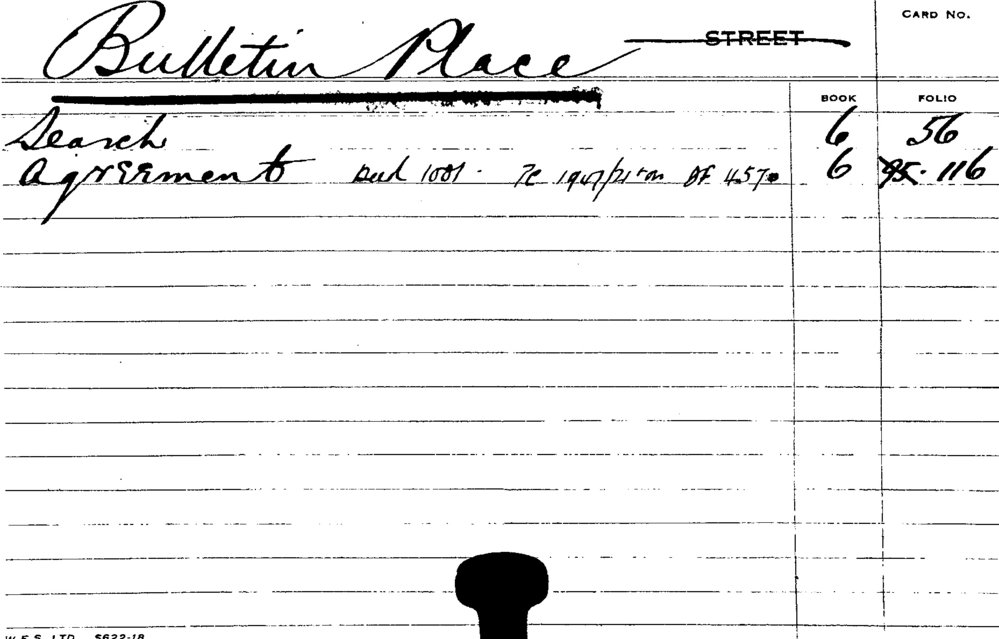 Bulletin Place STREET CARD NO.
BOOK FOLIO
Search 6 56
Agreement Deed 1081. TC 1947/21 on BF 457 6 95. 116
W.E.S. LTD. S622-18